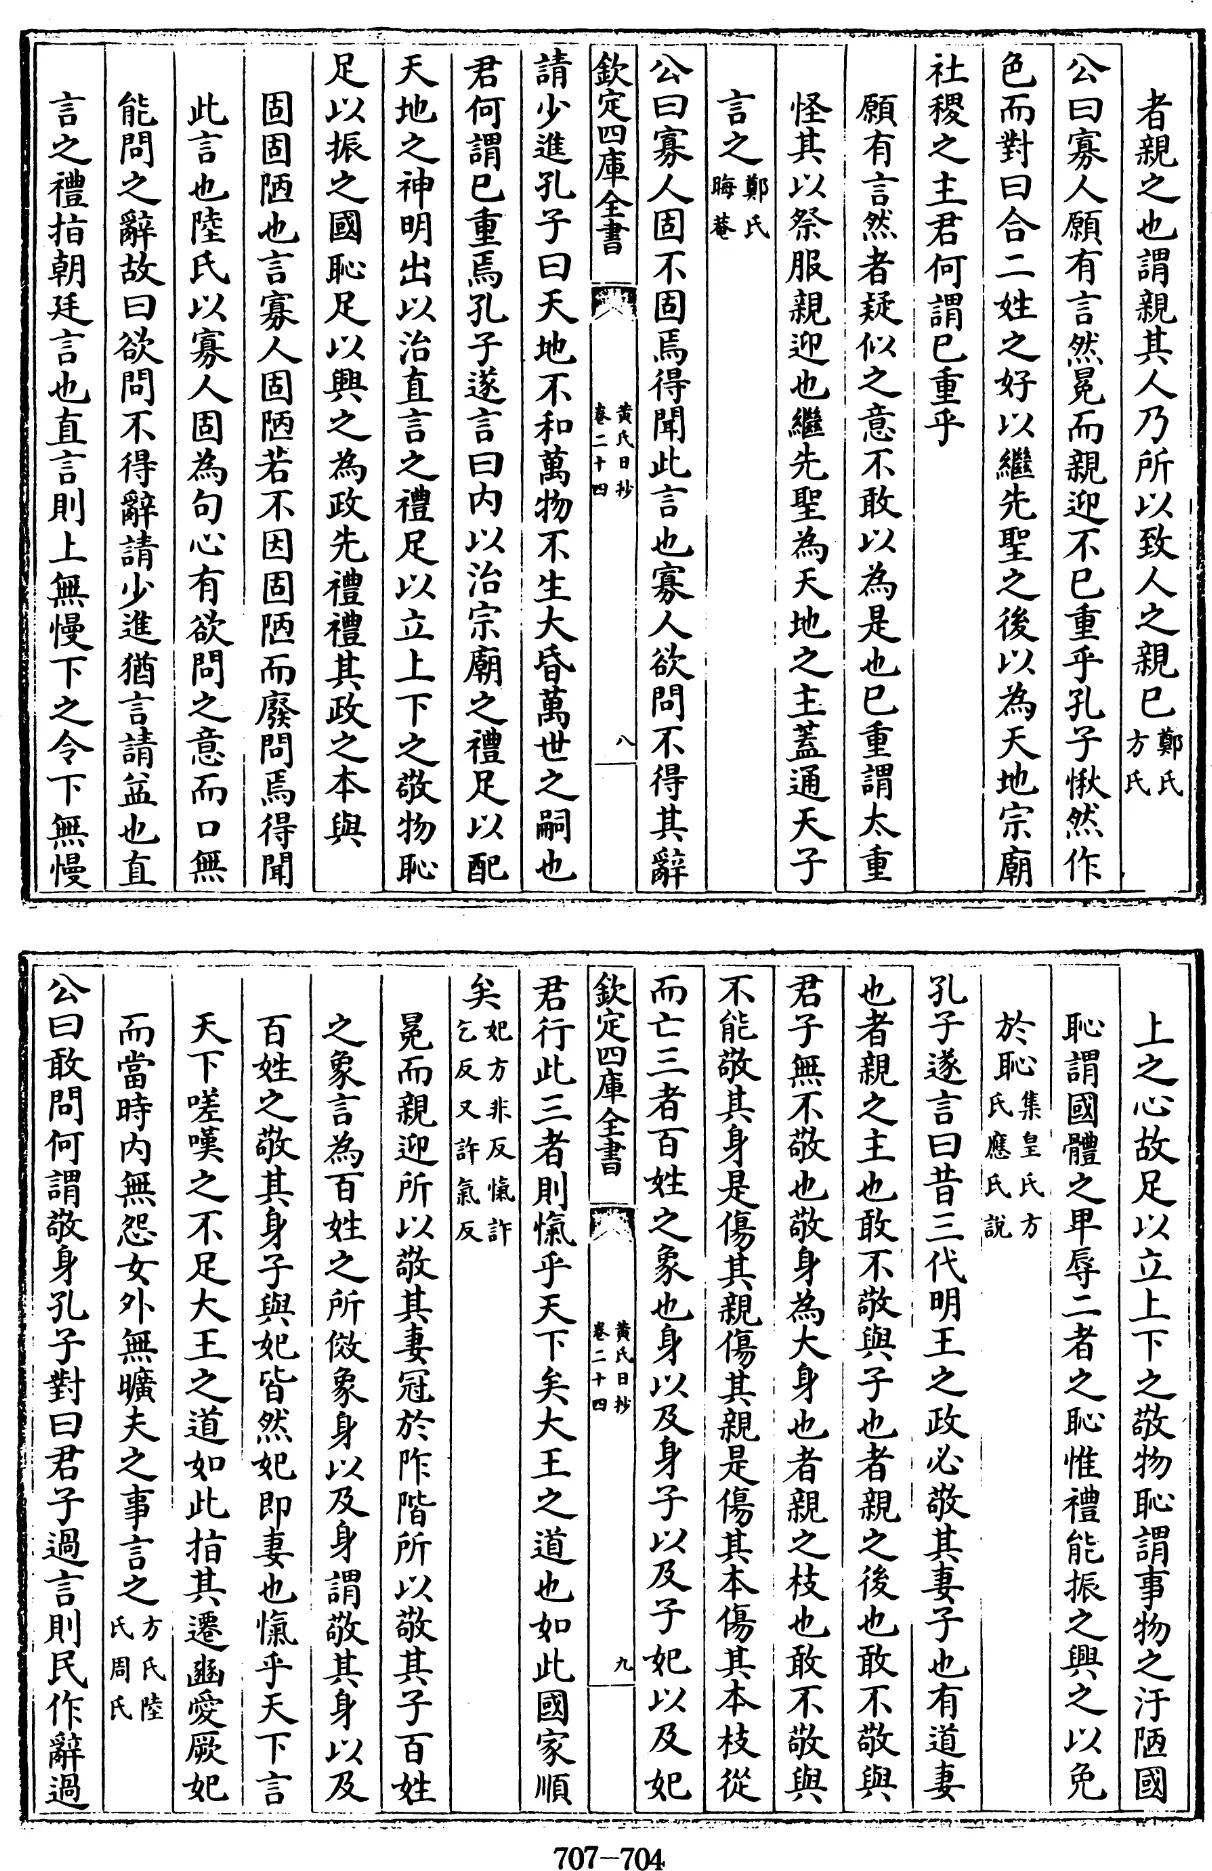 者親之也謂親其人乃所以致人之親已鄭氏方氏
公曰寡人願有言然冕而親迎不已重乎孔子愀然作
色而對曰合二姓之好以繼先聖之後以為天地宗廟
社稷之主君何謂已重乎
願有言然者疑似之意不敢以為是也已重謂太重
怪其以祭服親迎也繼先聖為天地之主蓋通天子
言之鄭氏晦菴
公曰寡人固不固焉得聞此言也寡人欲問不得其辭
欽定四庫全書 黄氏日抄 卷二十四 八
請少進孔子曰天地不和萬物不生大昏萬世之嗣也
君何謂已重焉孔子遂言曰内以治宗廟之禮足以配
天地之神明出以治直言之禮足以立上下之敬物恥
足以振之國恥足以興之為政先禮禮其政之本與
固固陋也言寡人固陋若不因固陋而廢問焉得聞
此言也陸氏以寡人固為句心有欲問之意而口無
能問之辭故曰欲問不得辭請少進猶言請益也直
言之禮指朝廷言也直言則上無慢下之令下無慢
上之心故足以立上下之敬物恥謂事物之汙陋國
恥謂國體之卑辱二者之恥惟禮能振之興之以免
於恥集皇氏方氏應氏說
孔子遂言曰昔三代明王之政必敬其妻子也有道妻
也者親之主也敢不敬與子也者親之後也敢不敬與
君子無不敬也敬身為大身也者親之枝也敢不敬與
不能敬其身是傷其親傷其親是傷其本傷其本枝從
而亡三者百姓之象也身以及身子以及子妃以及妃
欽定四庫全書 黄氏日抄 卷二十四 九
君行此三者則愾乎天下矣大王之道也如此國家順
矣妃方非反愾許乞反又許氣反
冕而親迎所以敬其妻冠於阼階所以敬其子百姓
之象言為百姓之所傚象身以及身謂敬其身以及
百姓之敬其身子與妃皆然妃即妻也愾乎天下言
天下嗟嘆之不足大王之道如此指其遷豳愛厥妃
而當時内無怨女外無曠夫之事言之方氏陸氏周氏
公曰敢問何謂敬身孔子對曰君子過言則民作辭過
707-704